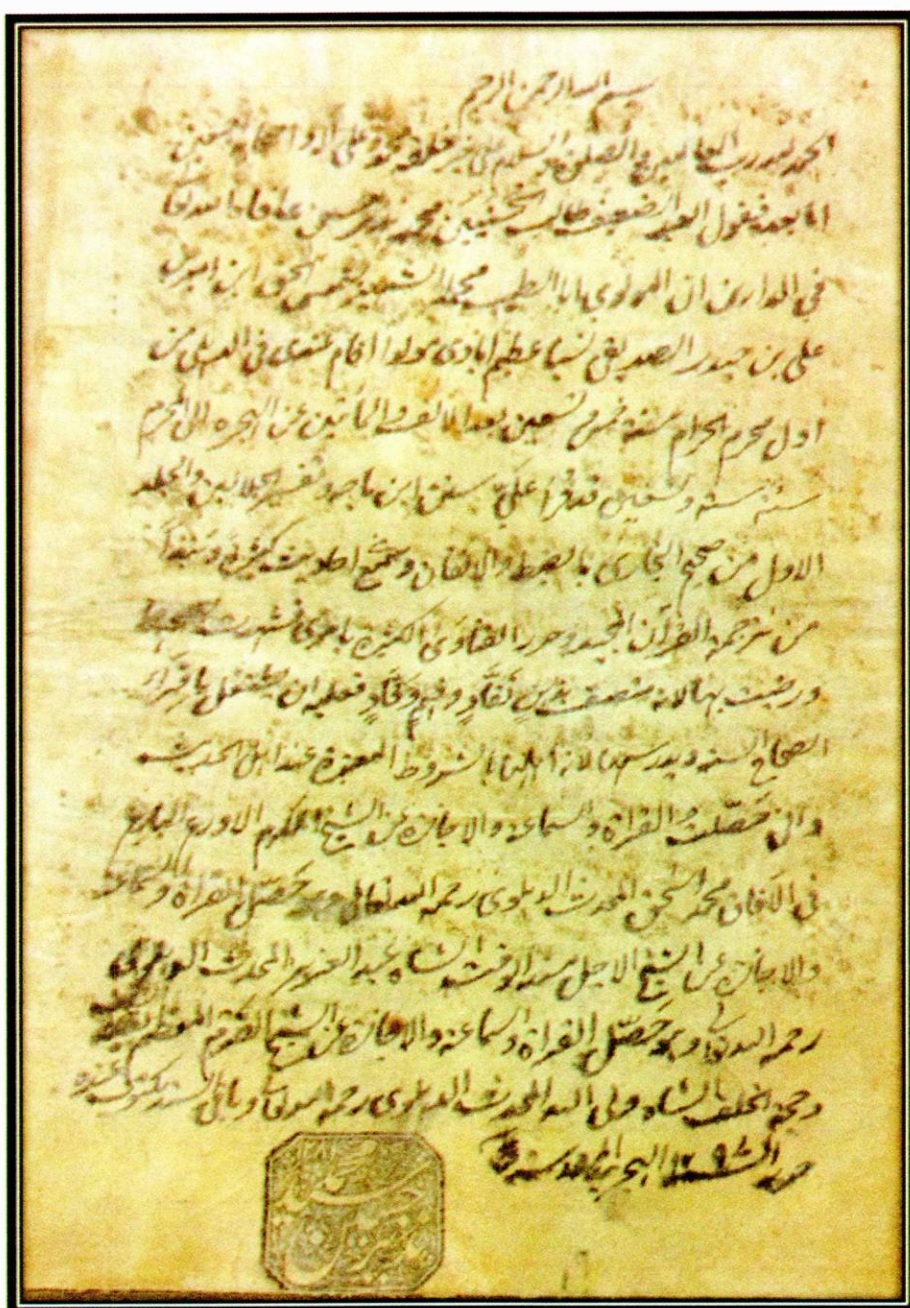 بسم الله الرحمن الرحيم
الحمد لله رب العالمين والصلوة والسلام على خير خلقه محمد وعلى اله واصحابه اجمعين
اما بعد فيقول العبد الضعيف طالب الحسنيين محمد نذير حسين عافاه الله تعا
في الدارين ان المولوي ابا الطيب محمد الشهير بشمس الحق ابن امير
علي بن حيدر الصديقي نسبا عظيم ابادى مولدا اقام عندى فى الدهلى من
اول محرم الحرام سنة خمس وتسعين بعد الالف والمأتين من الهجرة الى المحرم
سنة ستة وتسعين فقرأ عليّ سنن ابن ماجه وتفسير الجلالين والجلد
الاول من صحيح البخارى بالضبط والاتقان وسمع احاديث كثيرة ونبذاً
من ترجمة القرآن المجيد وحرر الفتاوى الكثيرة بامرى
ورضيت بها لانه منصف نقّادٍ وفهيم وقّادٍ فعليه ان يشتغل باقراء
الصحاح الستة ويدرسها لانه اهلها بالشروط المعتبرة عند اهل الحديث
وانى حصّلت القراة والسماعة والاجازة عن الشيخ المكرم الاورع البارع
فى الآفاق محمد اسحق المحدث الدهلوى رحمه الله تعالى وهو حصّل القراة والسماعة
والاجازة عن الشيخ الاجل مسند الوقت الشاه عبد العزيز المحدث الدهلوى
رحمه الله تعا وهو حصّل القراة والسماعة والاجازة عن الشيخ القرم المعظم بقية السلف
وحجة الخلف الشاه ولى الله المحدث الدهلوى رحمه الله تعا وباقى السند مكتوب عنده
حرره سنة ١٢٩٦ الهجرية المقدسة
سيد محمد نذير حسين